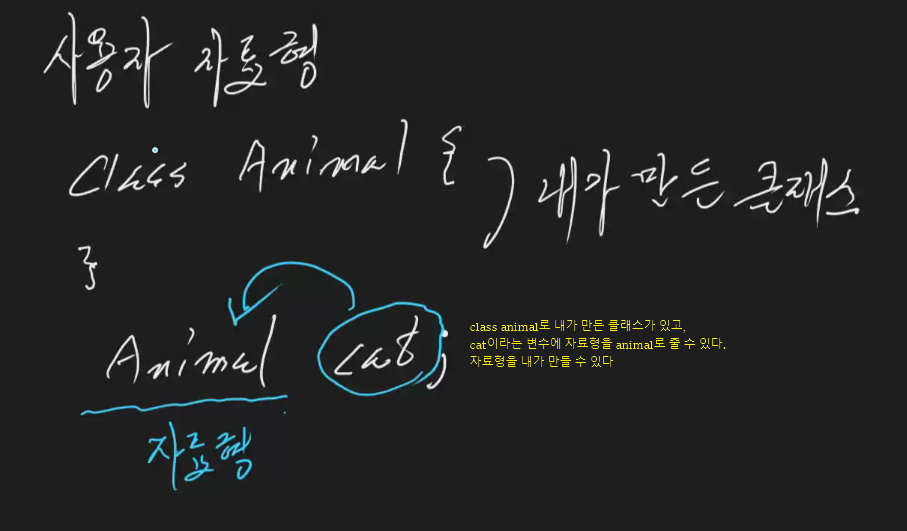 사용자 자료형
Class Animal {
} 내가 만든 클래스
}
Animal cat;
자료형
class animal로 내가 만든 클래스가 있고,
cat이라는 변수에 자료형을 animal로 줄 수 있다.
자료형을 내가 만들 수 있다